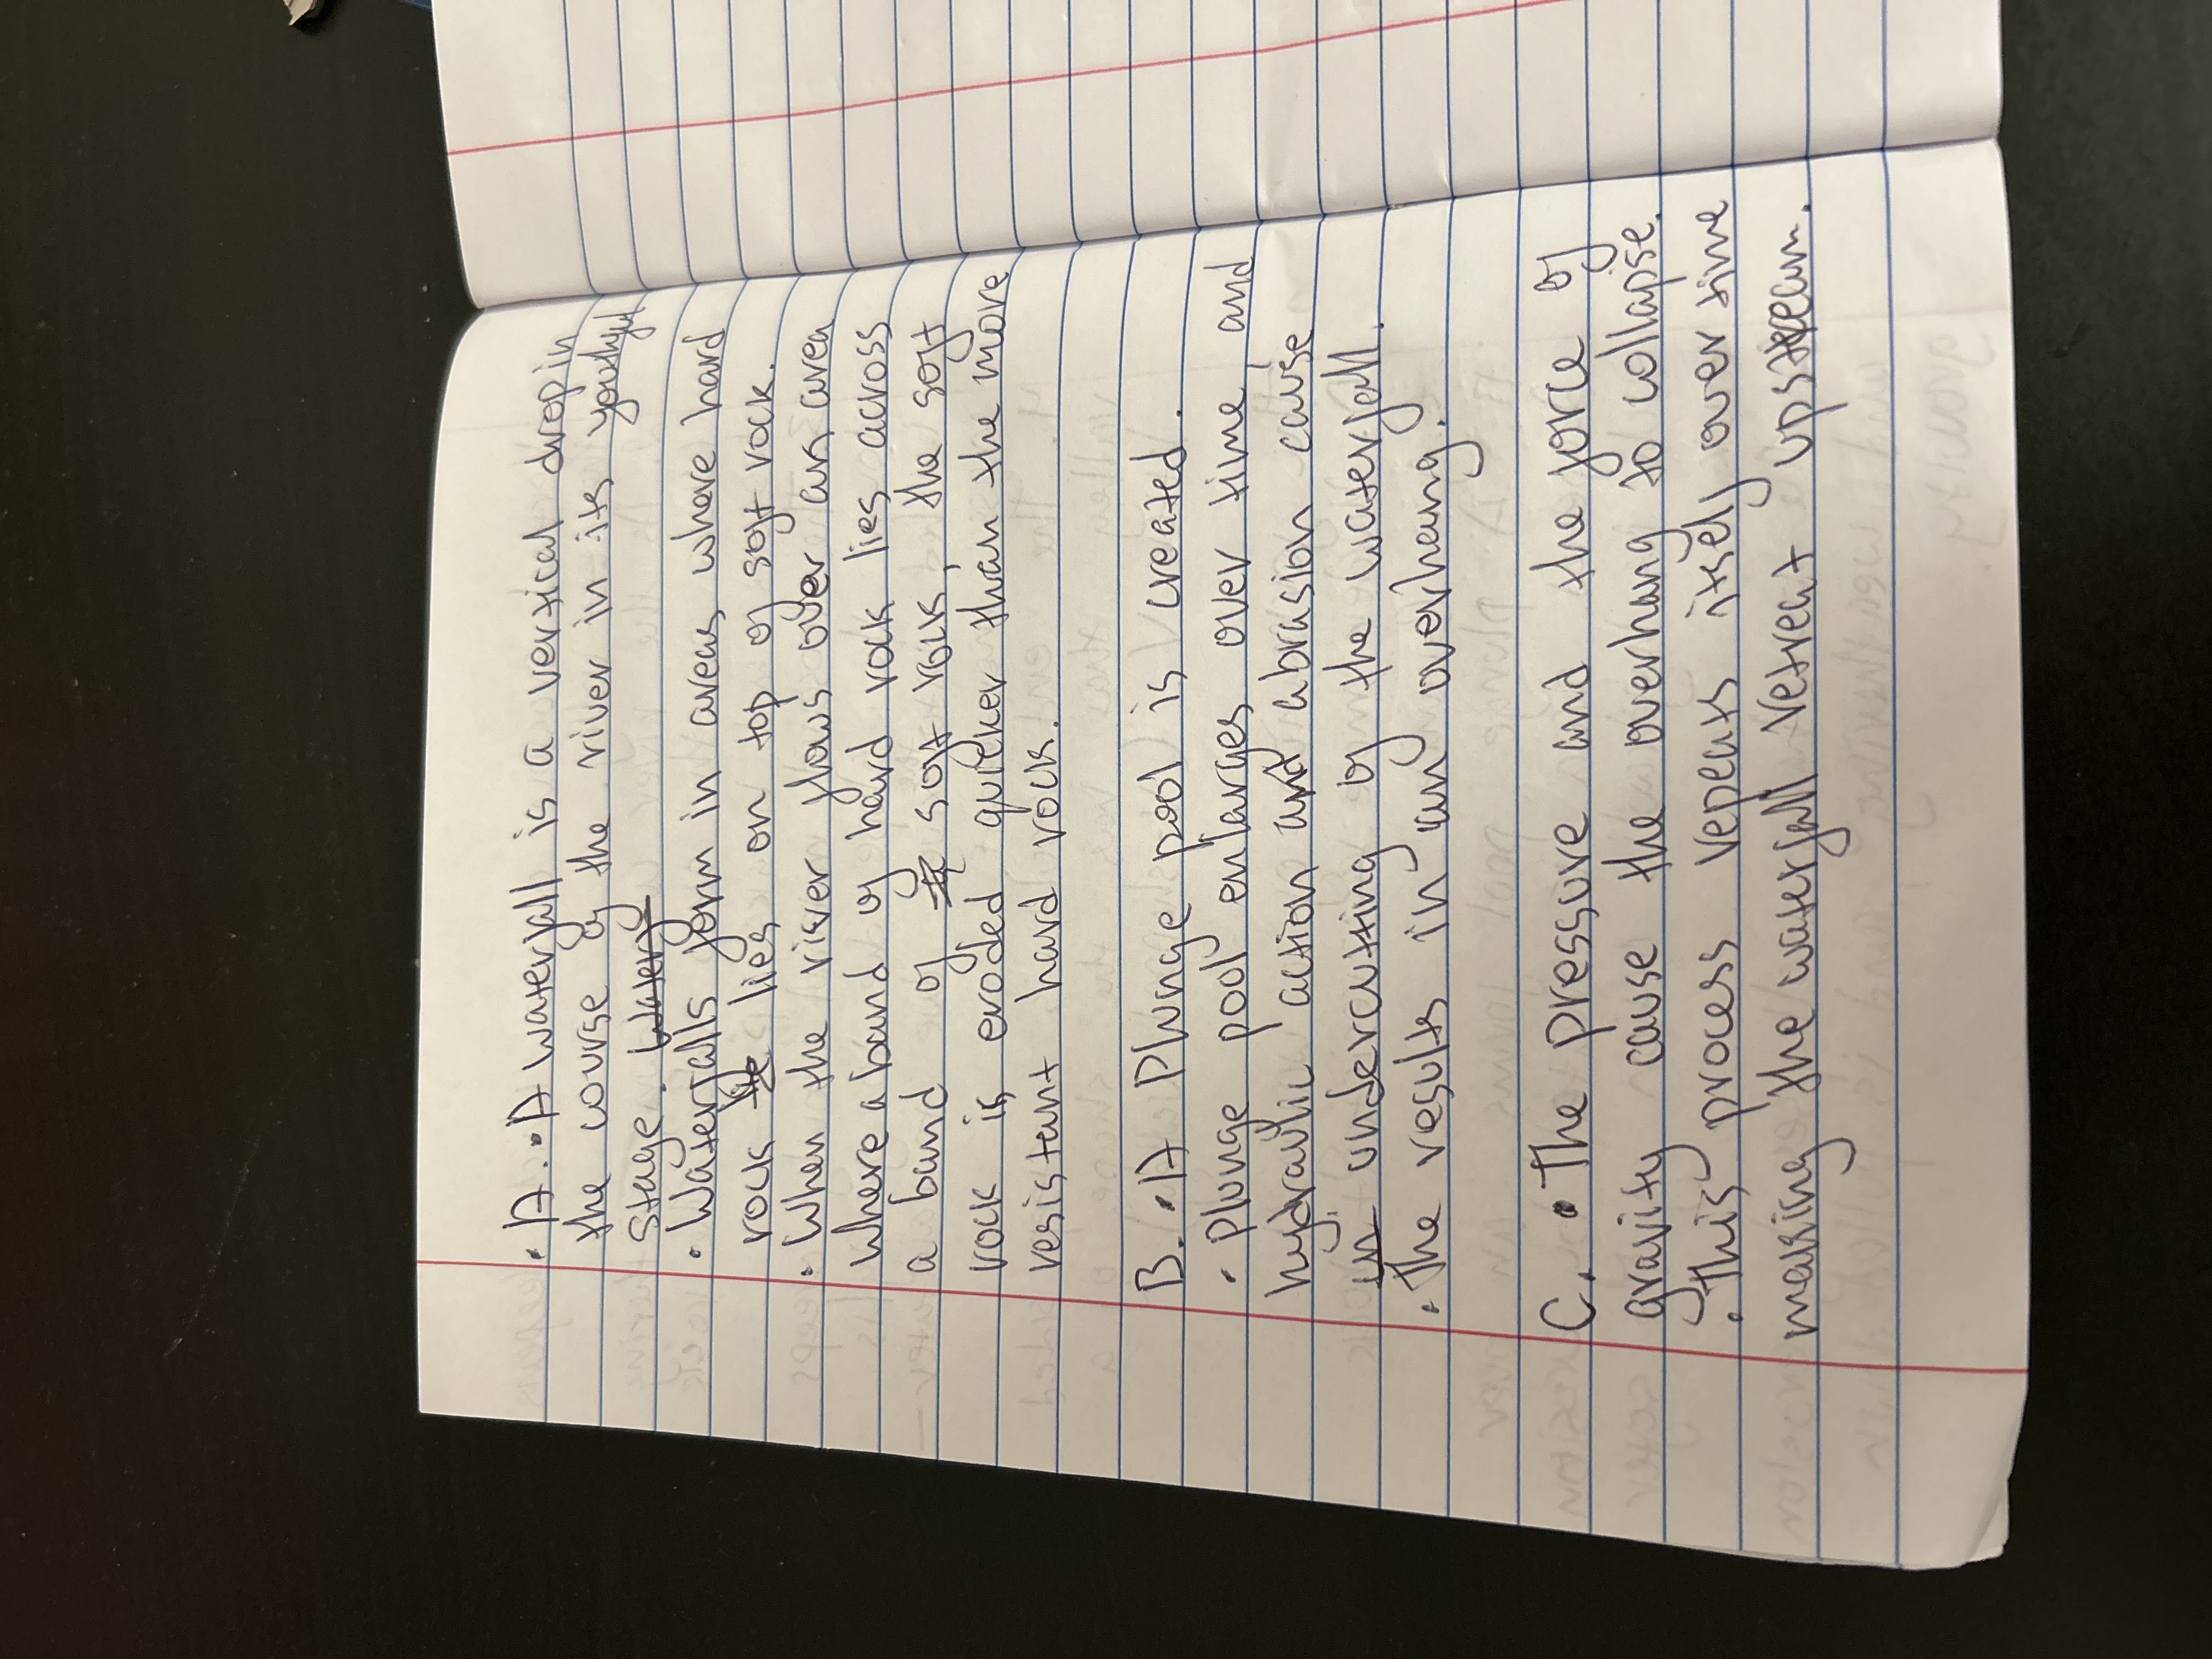 · A. · A waterfall is a vertical drop in
the course of the river in its youthful
stage. Watery
· Waterfalls form in areas where hard
rock lie lies on top of soft rock.
· When the river flows over an area
where a band of hard rock lies across
a band of soft rock, the soft
rock is eroded quicker than the more
resistant hard rock.
B. · A Plunge pool is created.
· Plunge pool enlarges over time and
hydraulic action and abrasion cause
un undercutting of the waterfall.
· The results in an overhang.
C. · The pressure and the force of
gravity cause the overhang to collapse.
· This process repeats itself over time
making the waterfall retreat upstream.